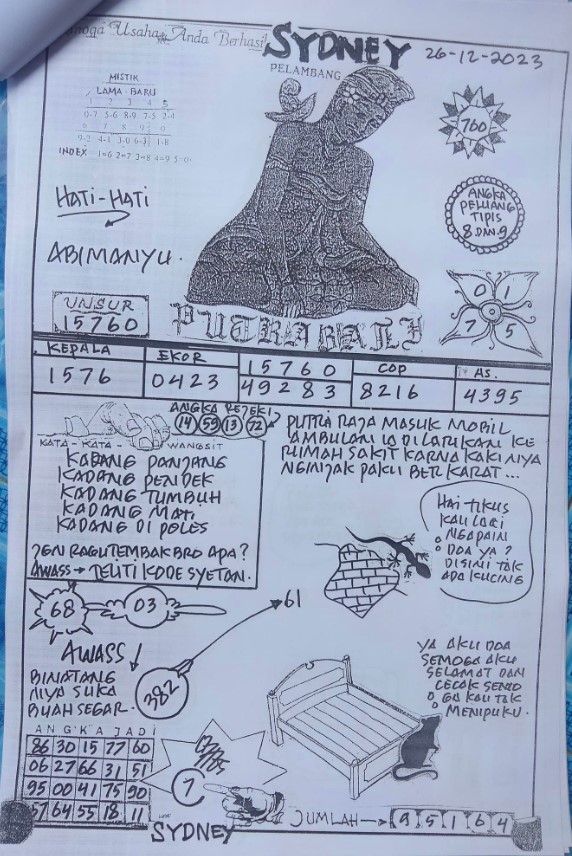 Semoga Usaha Anda Berhasil
SYDNEY
26-12-2023
PELAMBANG
MISTIK
LAMA - BARU
1 2 3 4 5
0-7 5-6 8-9 7-5 2-4
INDEX 1=6 2=7 3=8 4=9 5=0
760
HATI-HATI
ANGKA
PELUANG
TIPIS
8 DAN 9
ABIMANYU.
0 1
7 5
UNSUR
15760
PUTRA BALI
KEPALA
EKOR
15760
COP
AS.
1576
0423
49283
8216
4395
ANGKA REJEKI
14 59 13 72
KATA - KATA - WANGSIT
KADANG PANJANG
KADANG PENDEK
KADANG TUMBUH
KADANG MATI
KADANG DI POLES
JEN RAGU TEMBAK BRO APA?
AWASS → TELITI KODE SYETAN.
PUTRI RAJA MASUK MOBIL
AMBULAN IA DILARIKAN KE
RUMAH SAKIT KARNA KAKI NIYA
NGINJAK PAKU BERKARAT...
HAI TIKUS
KAU LARI
NGAPAIN
DOA YA?
DISINI TAK
ADA KUCING
68
03
61
AWASS!
BINATANG
NIYA SUKA
BUAH SEGAR.
382
YA AKU DOA
SEMOGA AKU
SELAMAT DAN
CECAK SENIO
GA KAU TAK
MENIPUKU.
ANGKA JADI
86 30 15 77 60
06 27 66 31 51
95 00 41 75 90
57 64 55 18 11
7
JUMLAH → 95164
SYDNEY